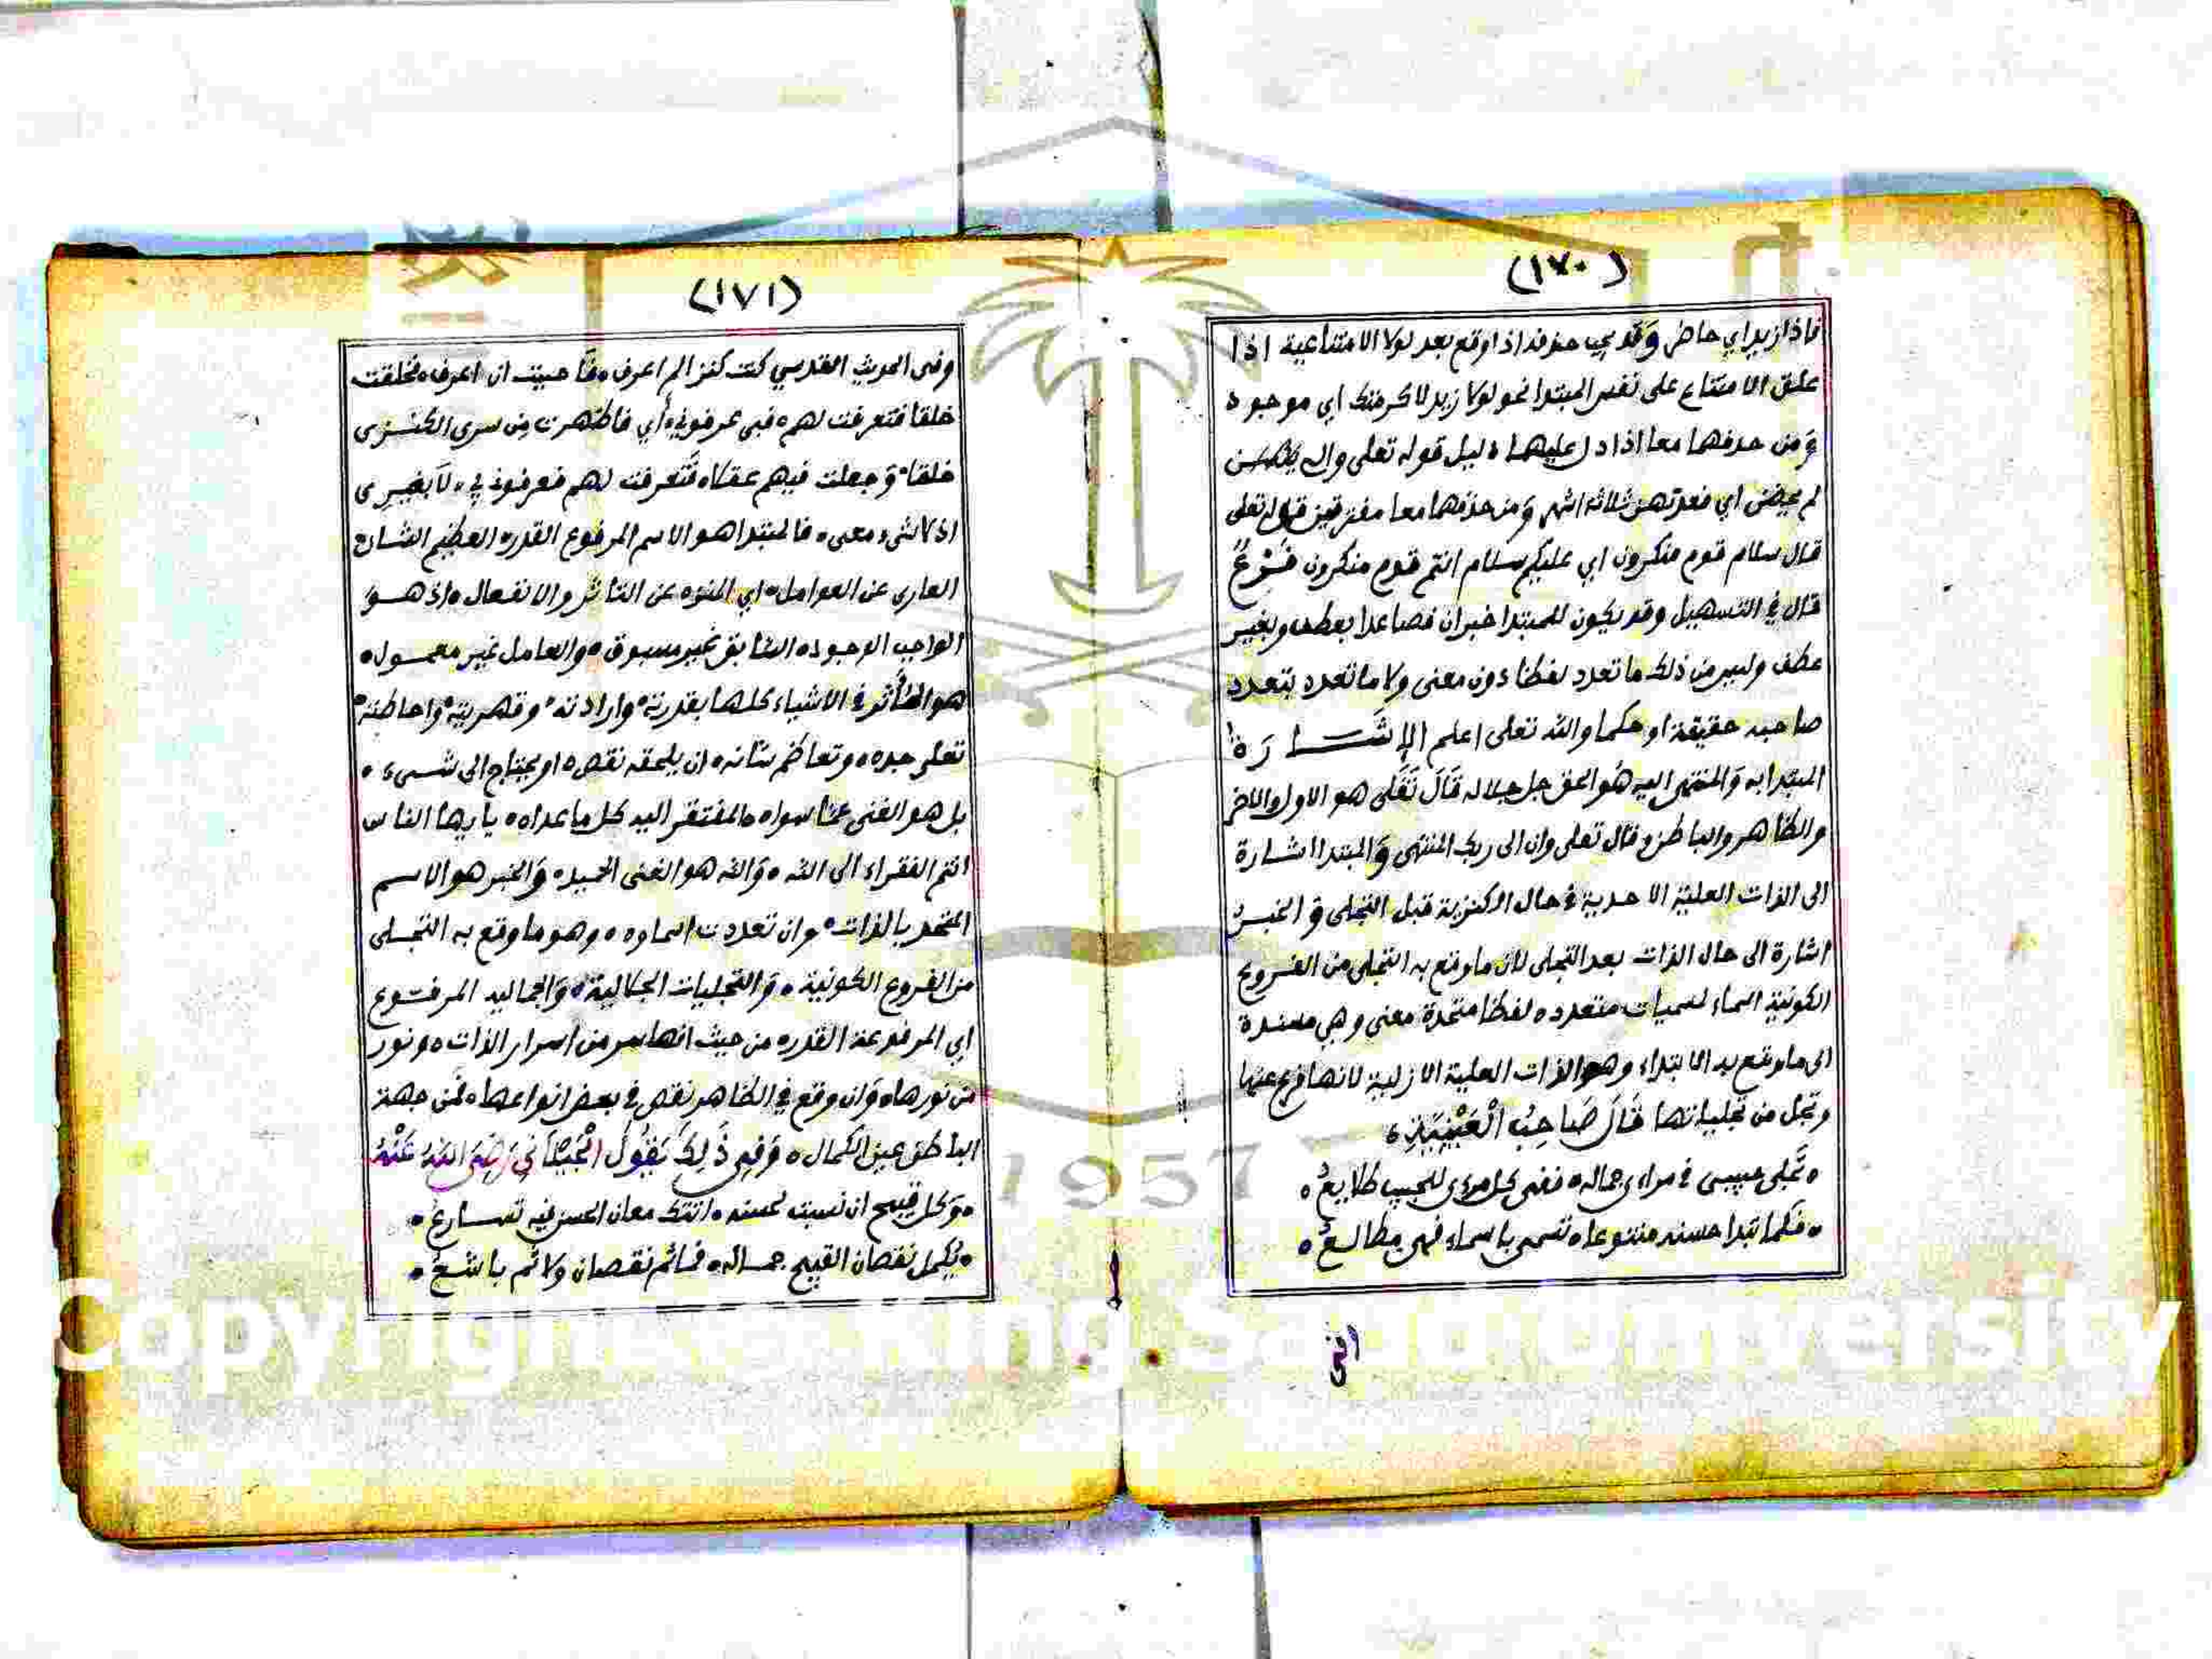 (١٧٠)
فاذا زيد اي حاضر وَقد يجب حذفه اذا وقع بعد لولا الامتناعية اذا
علق الامتناع على نفس المبتدا نحو لولا زيد لاكرمتك اي موجود
وَمن حذفهما معا اذا دل عليهما دليل قوله تعلى والـ يئسن
لم يحضن اي فعدتهن ثلاثة اشهر وَمن حذفهما معا مفترقين قوله تعلى
قال سلام قوم منكرون اي عليكم سلام انتم قوم منكرون فَرْعٌ
قال في التسهيل وقد يكون للمبتدا خبران فصاعدا بعطف وبغير
عطف وليس من ذلك ما تعدد لفظا دون معنى ولا ما تعدد بتعدد
صاحبه حقيقة او حكما والله تعلى اعلم الإشَارَة
المبتدا به وَالمنتهى اليه هُو الحق جل جلاله قَالَ تَعَلى هو الاول والاخر
والظاهر والباطن وقال تعلى وان الى ربك المنتهى وَالمبتدا اشارة
الى الذات العلية الاحدية في حال الكنزية قبل التجلى وَالخبرُ
اشارة الى حال الذات بعد التجلى لان ما وقع به التجلى من الفروع
الكونية اسماء لمسميات متعدده لفظا متحدة معنى وهي مسندة
الى ما وقع به الابتداء وهو الذات العلية الازلية لانها فرع عنها
وتجل من تجلياتها قَالَ صَاحِبُ الْعَيْنِيَّةِ
تَجلى حبيبى في مراءى جماله ففى كل مرءى للحبيب طلايعُ
فكما تبدا حسنه متنوعا تسمى باسماء فهى مطالعُ
(١٧١)
وفى الحديث القدسي كنت كنزا لم اعرف فَاحببت ان اعرف فخلقت
خلقا فتعرفت لهم فبى عرفوني أي فاظهرت من سرى الكنزى
خلقا وَجعلت فيهم عقلا فتَعرفت لهم فعرفونى بى لاَ بغيرى
اذ لا شىء معى فالمبتدا هو الاسم المرفوع القدر العظيم الشان
العارى عن العوامل اي المنزه عن التاثر والانفعال اذ هو
الواجب الوجود السابق غير مسبوق والعامل غير معمول
هو المُأثر في الاشياء كلها بقدرته وارادته وقهريته واحاطته
تعلى جده وتعاظم شانه ان يلحقه نقص او يحتاج الى شىء
بل هو الغنى عما سواه المفتقر اليه كل ما عداه يا ايها الناس
انتم الفقراء الى الله وَالله هو الغنى الحميد وَالخبر هو الاسم
المتحد بالذات وان تعددت اسماوه وهو ما وقع به التجلى
من الفروع الكونية وَالتجليات الجلالية وَالجماليه المرفوع
اي المرفوعة القدر من حيث انها سر من اسرار الذات ونور
من نورها وَان وقع في الظاهر نقص في بعض انواعها فمن جهة
الباطن عين الكمال وَفِى ذَلِكَ يَقُولُ الْجِيْلاَنِي رَضِىَ اللهُ عَنْهُ
وَكل قبيح ان نسبت لحسنه اتتك معانى الحسن فيه تسارعُ
يُكمل نقصان القبيح جماله فما ثم نقصان ولا ثم باشعُ